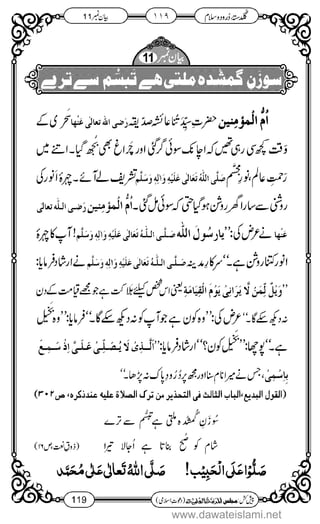 بیان نمبر 11 ۱۱۹ گلدستۂ درود و سلام
بیان نمبر 11
سوزنِ گمشدہ ملتی ہے تبسُّم سے ترے
اُمُّ الْمؤمِنین حضرتِ سیِّدَتُنا عائشہ صدّیقہ رَضی اللہ تعالٰی عَنْہا سَحَری کے
وَقت کچھ سی رہی تھیں کہ اچانک سوئی گر گئی اور چَراغ بھی بُجھ گیا۔ اتنے میں
رَحمتِ عالَم، نورِ مُجسَّم صَلَّی اللّٰہُ تَعَالٰی عَلَیْہِ وَاٰلِہٖ وَسَلَّم تشریف لے آئے۔ چہرۂ انور کی
روشنی سے سارا گھر روشن ہو گیا حتی کہ سوئی مل گئی۔ اُمُّ الْمؤمِنین رَضی اللہ تعالٰی
عَنْہا نے عرض کی: ”یارسولَ اللّٰہ صَلَّی اللّٰہُ تَعَالٰی عَلَیْہِ وَاٰلِہٖ وَسَلَّم! آپ کا چہرۂ
انور کتنا روشن ہے۔“ سرکارِ مدینہ صَلَّی اللّٰہُ تَعَالٰی عَلَیْہِ وَاٰلِہٖ وَسَلَّم نے ارشاد فرمایا:
”وَیْلٌ لِّمَنْ لَّا یَرَانِیْ یَوْمَ الْقِیَامَۃِ یعنی اس شخص کیلئے ہلاکت ہے جو مجھے قیامت کے دن
نہ دیکھ سکے گا۔“ عرض کی: ”وہ کون ہے جو آپ کو نہ دیکھ سکے گا۔“ فرمایا: ”وہ بخیل
ہے۔“ پوچھا: ”بخیل کون؟“ ارشاد فرمایا: ”اَلَّذِیْ لَا یُصَلِّیْ عَلَیَّ اِذْ سَمِعَ
بِاِسْمِیْ، جس نے میرا نام سنا اور مجھ پر دُرُودِ پاک نہ پڑھا۔“
(القول البدیع، الباب الثالث فی التحذیر من ترک الصلاۃ علیہ عندذکرہ، ص۳۰۲)
سُوزنِ گُمشدہ ملتی ہے تبسُّم سے ترے
شام کو صُبح بناتا ہے اُجالا تیرا (ذوقِ نعت، ص۱۶)
صَلُّوْا عَلَی الْحَبِیْب! صَلَّی اللّٰہُ تَعَالٰی عَلٰی مُحَمَّد
119
www.dawateislami.net